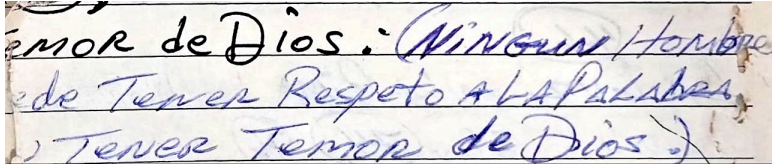 emor de Dios: (Ningun Hombre
ede Tener Respeto A LA PALABRA
Tener Temor de Dios.)